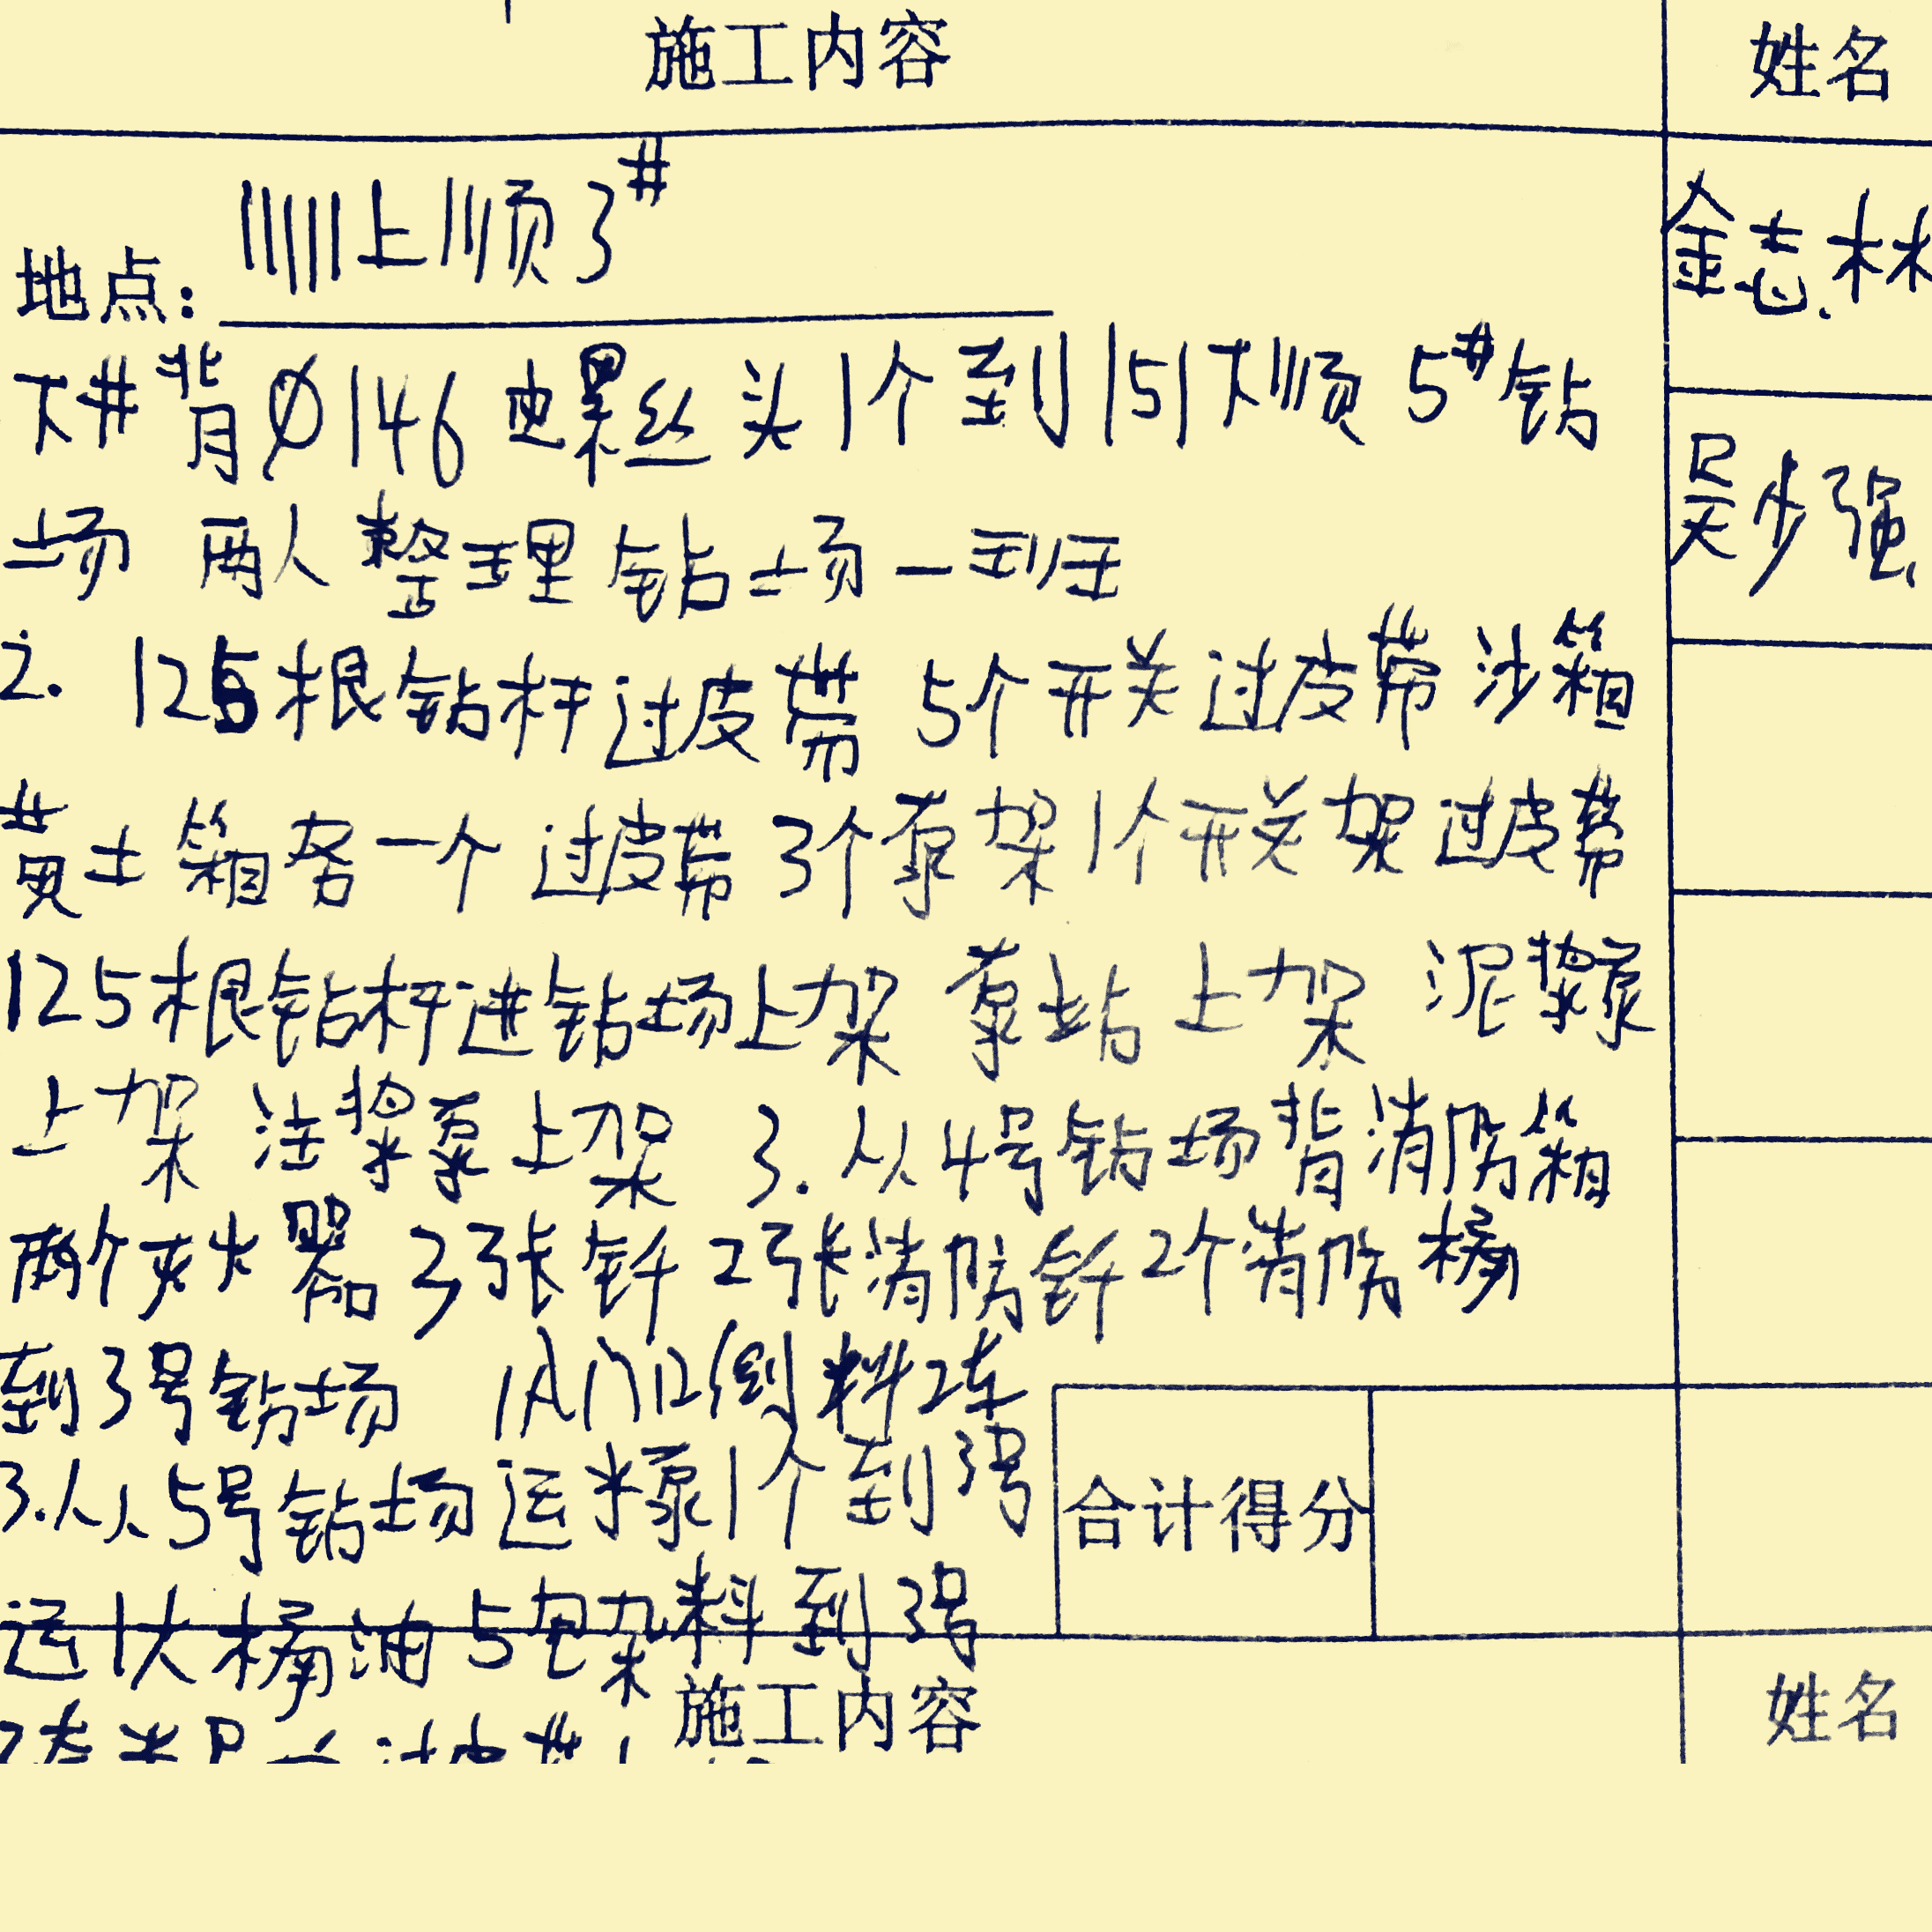 施工内容 姓名
地点: 11111上川顺3# 金志林
下井背Ø146 螺丝头1个到1151下顺5#钻
场 两人整理钻场一到班 吴步强
2. 125根钻杆过皮带 5个开关过皮带 沙箱
黄土箱各一个过皮带 3个泵架1个开关架过皮带
125根钻杆进钻场上架 泵站上架 泥浆泵
上架 注浆泵上架 3.从4号钻场背消防箱
两个灭火器 3张钎 2张消防钎2个消防桶
到3号钻场 倒料2车
3.从5号钻场运水泵1个到3号
合计得分
运1大桶油5包杂料到3号
施工内容 姓名